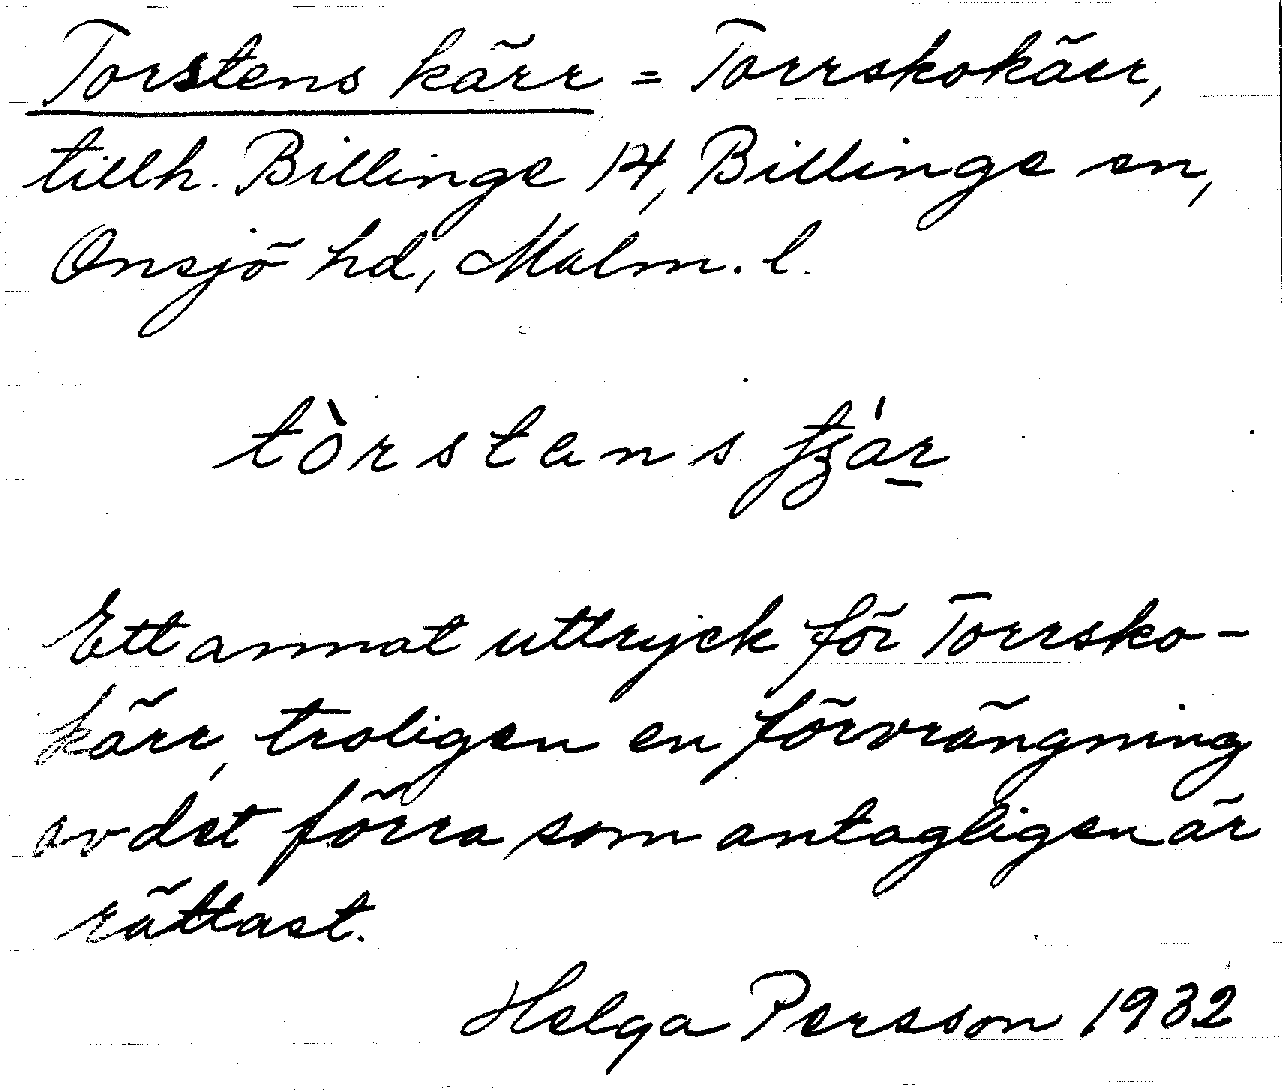 Torstens kärr = Torrskokärr,
tillh. Billinge 14, Billinge sn,
Onsjö hd, Malm. l.
tòrstans
Ett annat uttryck för Torrsko-
kärr, troligen en förvrängning
av det förra som antagligen är
rättast.
Helga Persson 1932